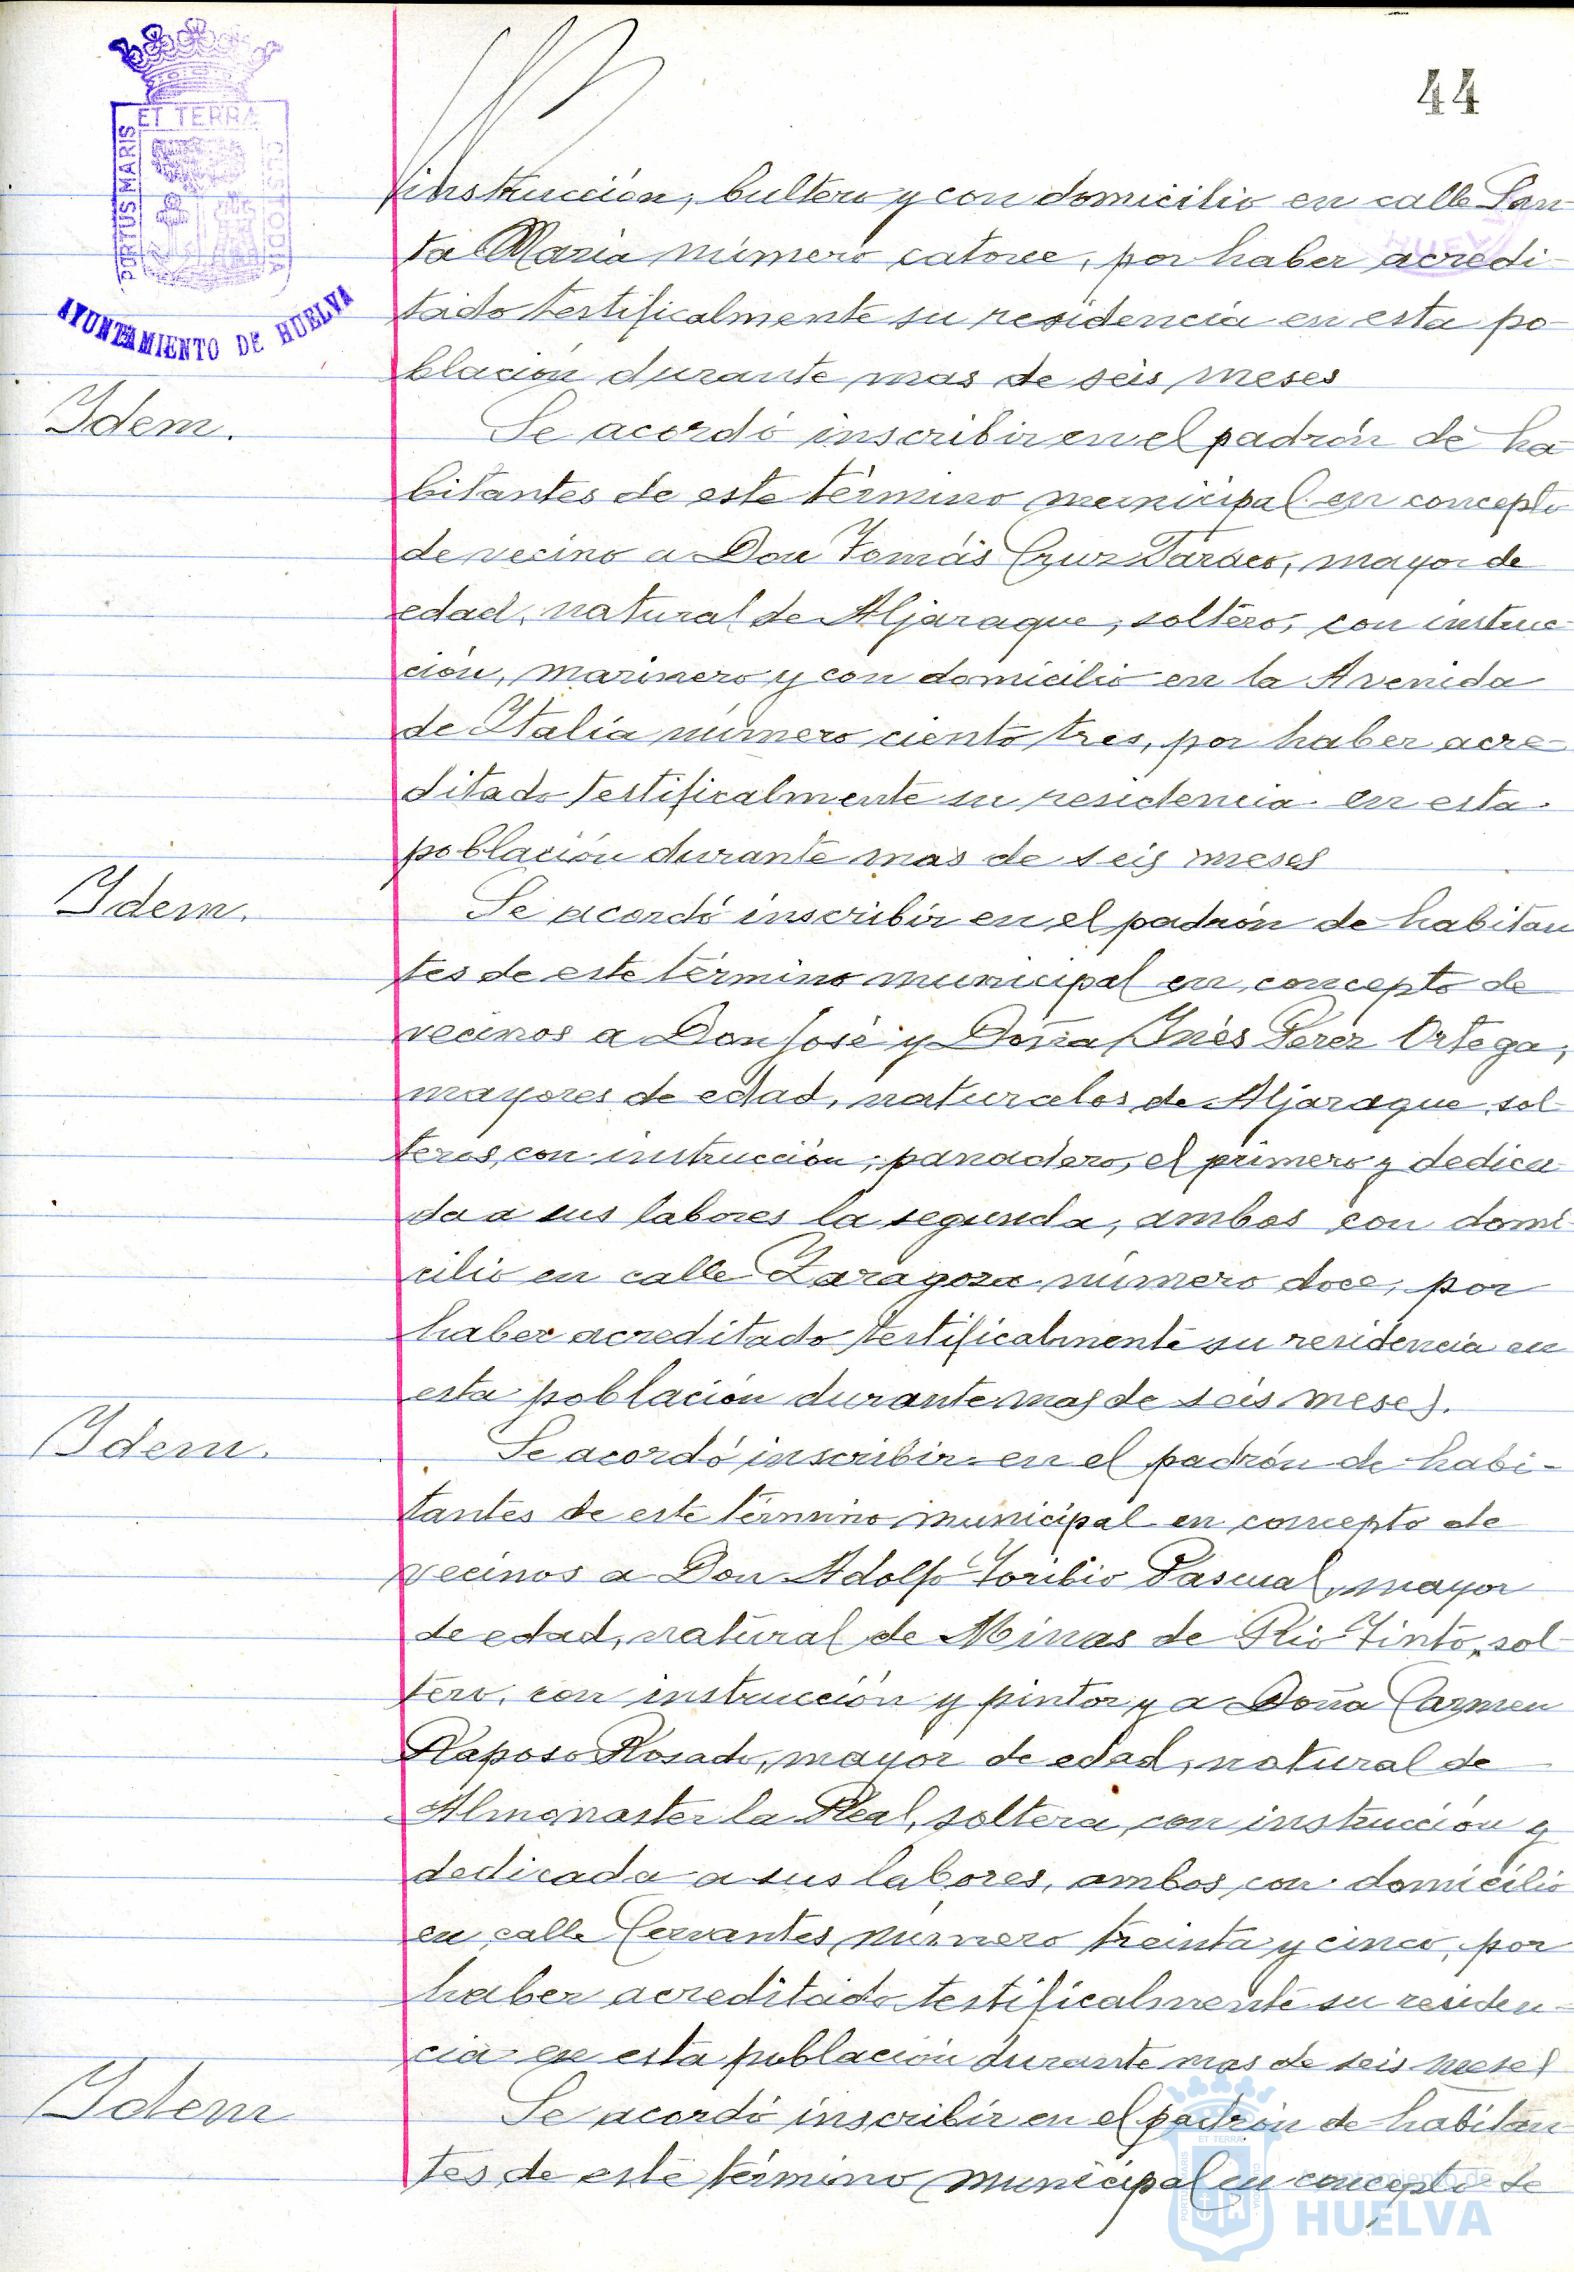 44
ET TERRÆ
PORTUS MARIS
CUSTODIA
AYUNTAMIENTO DE HUELVA
instrucción, bultero y con domicilio en calle San-
ta Maria número catorce, por haber acredi-
tado testificalmente su residencia en esta po-
blación durante mas de seis meses
Idem.
Se acordó inscribir en el padrón de ha-
bitantes de este término municipal en concepto
de vecino a Don Tomás Cruz, mayor de
edad, natural de Aljaraque, soltero, con instruc-
ción, marinero y con domicilio en la Avenida
de Italia número ciento tres, por haber acre-
ditado testificalmente su residencia en esta
población durante mas de seis meses
Idem.
Se acordó inscribir en el padrón de habitan
tes de este término municipal en concepto de
vecinos a Don José y Doña Inés Perez Ortega,
mayores de edad, naturales de Aljaraque, sol-
teros, con instrucción, panadero, el primero y dedica
da a sus labores la segunda, ambos con domi-
cilio en calle Zaragoza número doce, por
haber acreditado testificalmente su residencia en
esta población durante mas de seis meses.
Idem.
Se acordó inscribir en el padrón de habi-
tantes de este término municipal en concepto de
vecinos a Don Adolfo Toribio Pascual, mayor
de edad, natural de Minas de Rio Tinto, sol-
tero, con instrucción y pintor y a Doña Carmen
Raposo Rosado, mayor de edad, natural de
Almonaster la Real, soltera, con instrucción y
dedicada a sus labores, ambos con domicilio
en calle Cervantes número treinta y cinco, por
haber acreditado testificalmente su residen-
cia en esta población durante mas de seis meses
Idem
Se acordó inscribir en el padrón de habitan
tes de este término municipal en concepto de
Ayuntamiento de
HUELVA